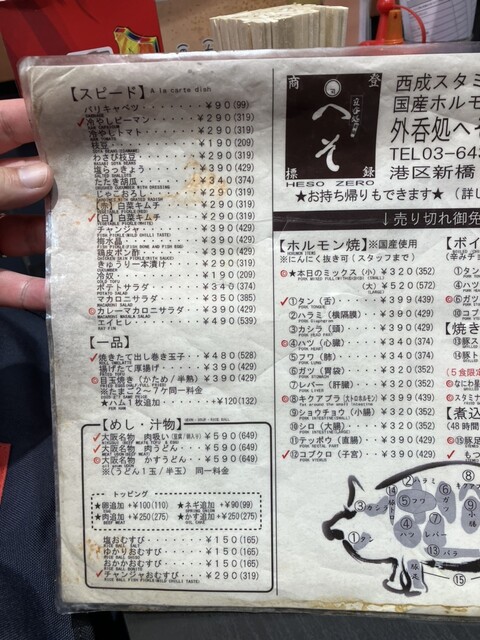 【スピード】 A la carte dish
パリキャベツ ¥90(99)
冷やしピーマン ¥290(319)
冷やしトマト ¥290(319)
枝豆 ¥190(209)
わさび枝豆 ¥290(319)
塩らっきょう ¥390(429)
たたき胡瓜 ¥340(374)
じゃこおろし ¥290(319)
(赤) 白菜キムチ ¥290(319)
(白) 白菜キムチ ¥290(319)
チャンジャ ¥390(429)
梅水晶 ¥390(429)
鶏皮ポン酢 ¥390(429)
きゅうり一本漬け ¥290(319)
冷奴 ¥190(209)
ポテトサラダ ¥340(374)
マカロニサラダ ¥350(385)
カレーマカロニサラダ ¥390(429)
エイヒレ ¥490(539)
【一品】
焼きたて出し巻き玉子 ¥480(528)
揚げたて厚揚げ ¥390(429)
目玉焼き(かため/半熟) ¥390(429)
※たまご2〜7ケ同一料金
★ハム1枚追加 +¥120(132)
【めし・汁物】
大阪名物 肉吸い ¥590(649)
大阪名物 肉うどん ¥590(649)
大阪名物 かすうどん ¥590(649)
※(うどん1玉/半玉) 同一料金
トッピング
★卵追加 +¥100(110) ★ネギ追加 +¥90(99)
★肉追加 +¥250(275) ★かす追加 +¥250(275)
塩おむすび ¥150(165)
ゆかりおむすび ¥150(165)
おかかおむすび ¥150(165)
チャンジャおむすび ¥290(319)
商 登
へそ
標 録
HESO ZERO
西成スタミ
国産ホルモ
外呑処へそ
TEL03-643
港区新橋
★お持ち帰りもできます★ (詳し
↓売り切れ御免
【ホルモン焼】※国産使用
※にんにく抜き可(スタッフまで)
★本日のミックス(小) ¥320(352)
(大) ¥520(572)
①タン(舌) ¥399(439)
②ハラミ(横隔膜) ¥390(429)
③カシラ(頭) ¥390(429)
④ハツ(心臓) ¥340(374)
⑤フワ(肺) ¥340(374)
⑥ガツ(胃袋) ¥320(352)
⑦レバー(肝臓) ¥320(352)
⑧キクアブラ ¥399(439)
⑨ショウチョウ(小腸) ¥320(352)
⑩シロ(大腸) ¥320(352)
⑪テッポウ(直腸) ¥390(429)
⑫コブクロ(子宮) ¥390(429)
【ボイ
(辛みチョ
①タン
④ハツ
⑥ガツ
⑫コブ
【焼き
⑬豚ス
⑭豚ト
(5食限定
なにわ星
スタミナ
【煮込
(48時間
⑮豚足
もつ
①タン
②ハラミ
③カシラ
④ハツ
⑤フワ
⑥ガツ
⑦レバー
⑧
キクアブ
⑨小腸
⑬バラ
豚足
⑮